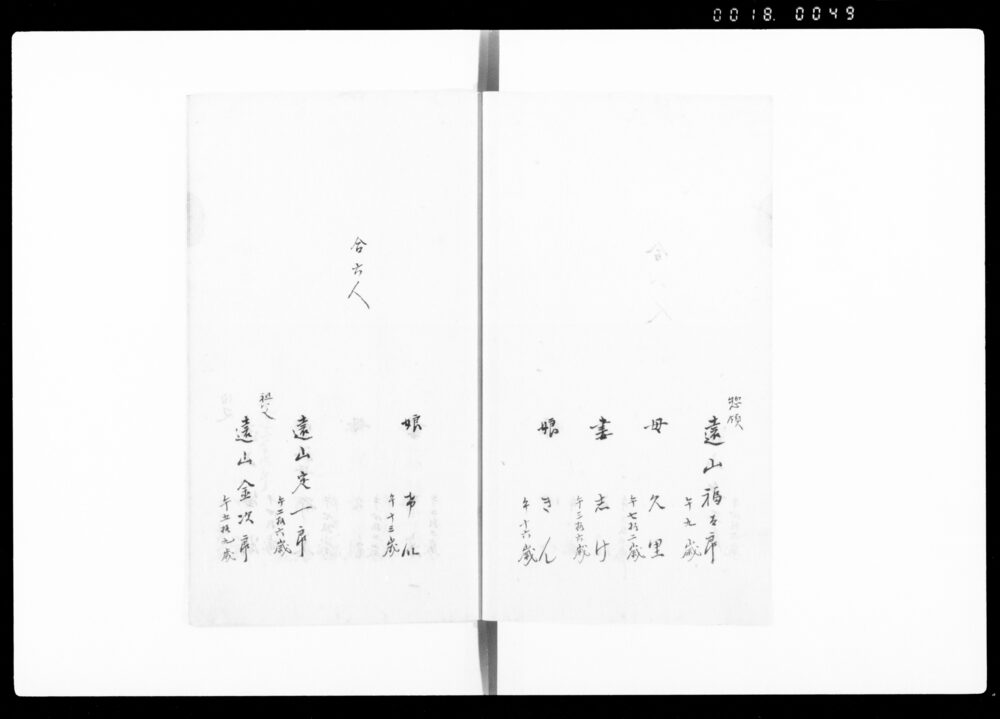 0018. 0049
惣領
遠山福太郎
午九歳
母 久里
午七拾二歳
妻 志け
午三拾六歳
娘 きん
午十六歳
娘 市
午十三歳
遠山定一郎
午三拾六歳
祖父
遠山金次郎
午五拾九歳
合六人